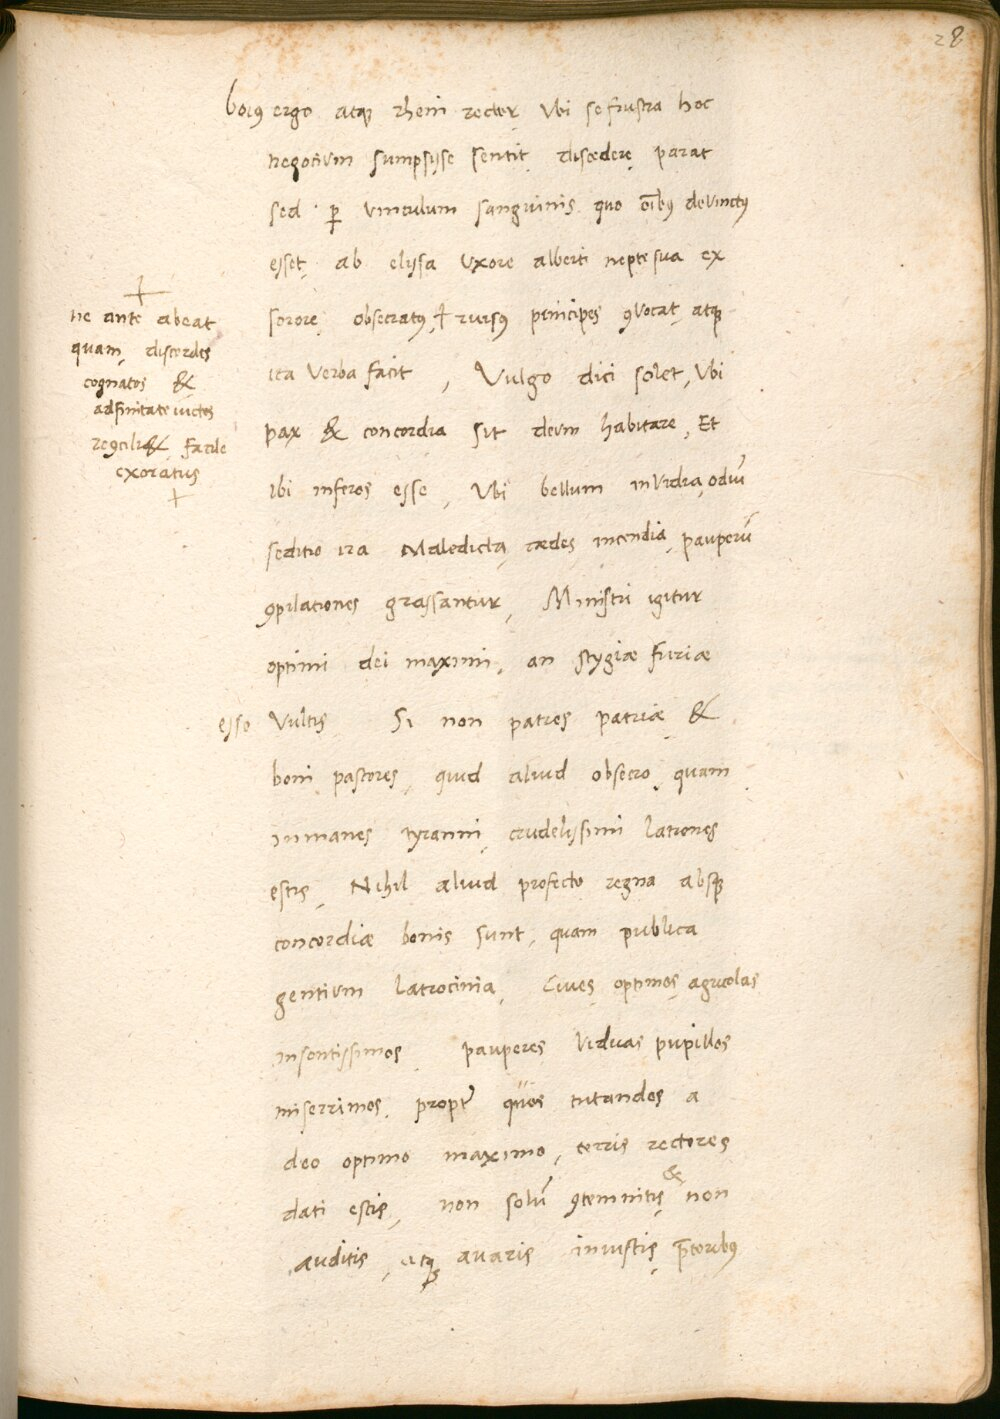 28
boiꝰ ergo atqꝫ rheni rector Vbi se frustra hoc
negotium sumpsisse sentit discedere parat
sed ꝑ vinculum sanguinis quo oībꝰ devinctꝰ
esset, ab elissa uxore alberti nepte sua ex
sorore obsecratꝰ, + rursꝰ principes ꝯvocat, atqꝫ
ita Verba facit, Vulgo dici solet, Vbi
pax & concordia sit deum habitare, Et
ibi inferos esse, Vbi bellum invidia, odiū
seditio ira Maledicta, cædes, incendia, pauperū
ꝯpilationes grassantur, Ministri igitur
optimi dei maximi, an stygiæ furiæ
esse Vultis Si non patres patriæ &
boni pastores, quid aliud obsecro, quam
inmanes tyranni, crudelissimi latrones
estis, Nihil aliud profecto regna absqꝫ
concordiæ bonis sunt, quam publica
gentium latrocinia, Cives optimos, agricolas
insontissimos, pauperes Viduas pupillos
miserrimos, propt̄ quos tutandos a
deo optimo maximo, terris rectores
dati estis, non solū ꝯtemnitis, & non
auditis, atqꝫ avaris iniustis, p̄toribꝰ
+
ne ante abeat
quam, discordes
cognatos &
adfinitate iūctos
reꝯciliet, facile
exoratus
+